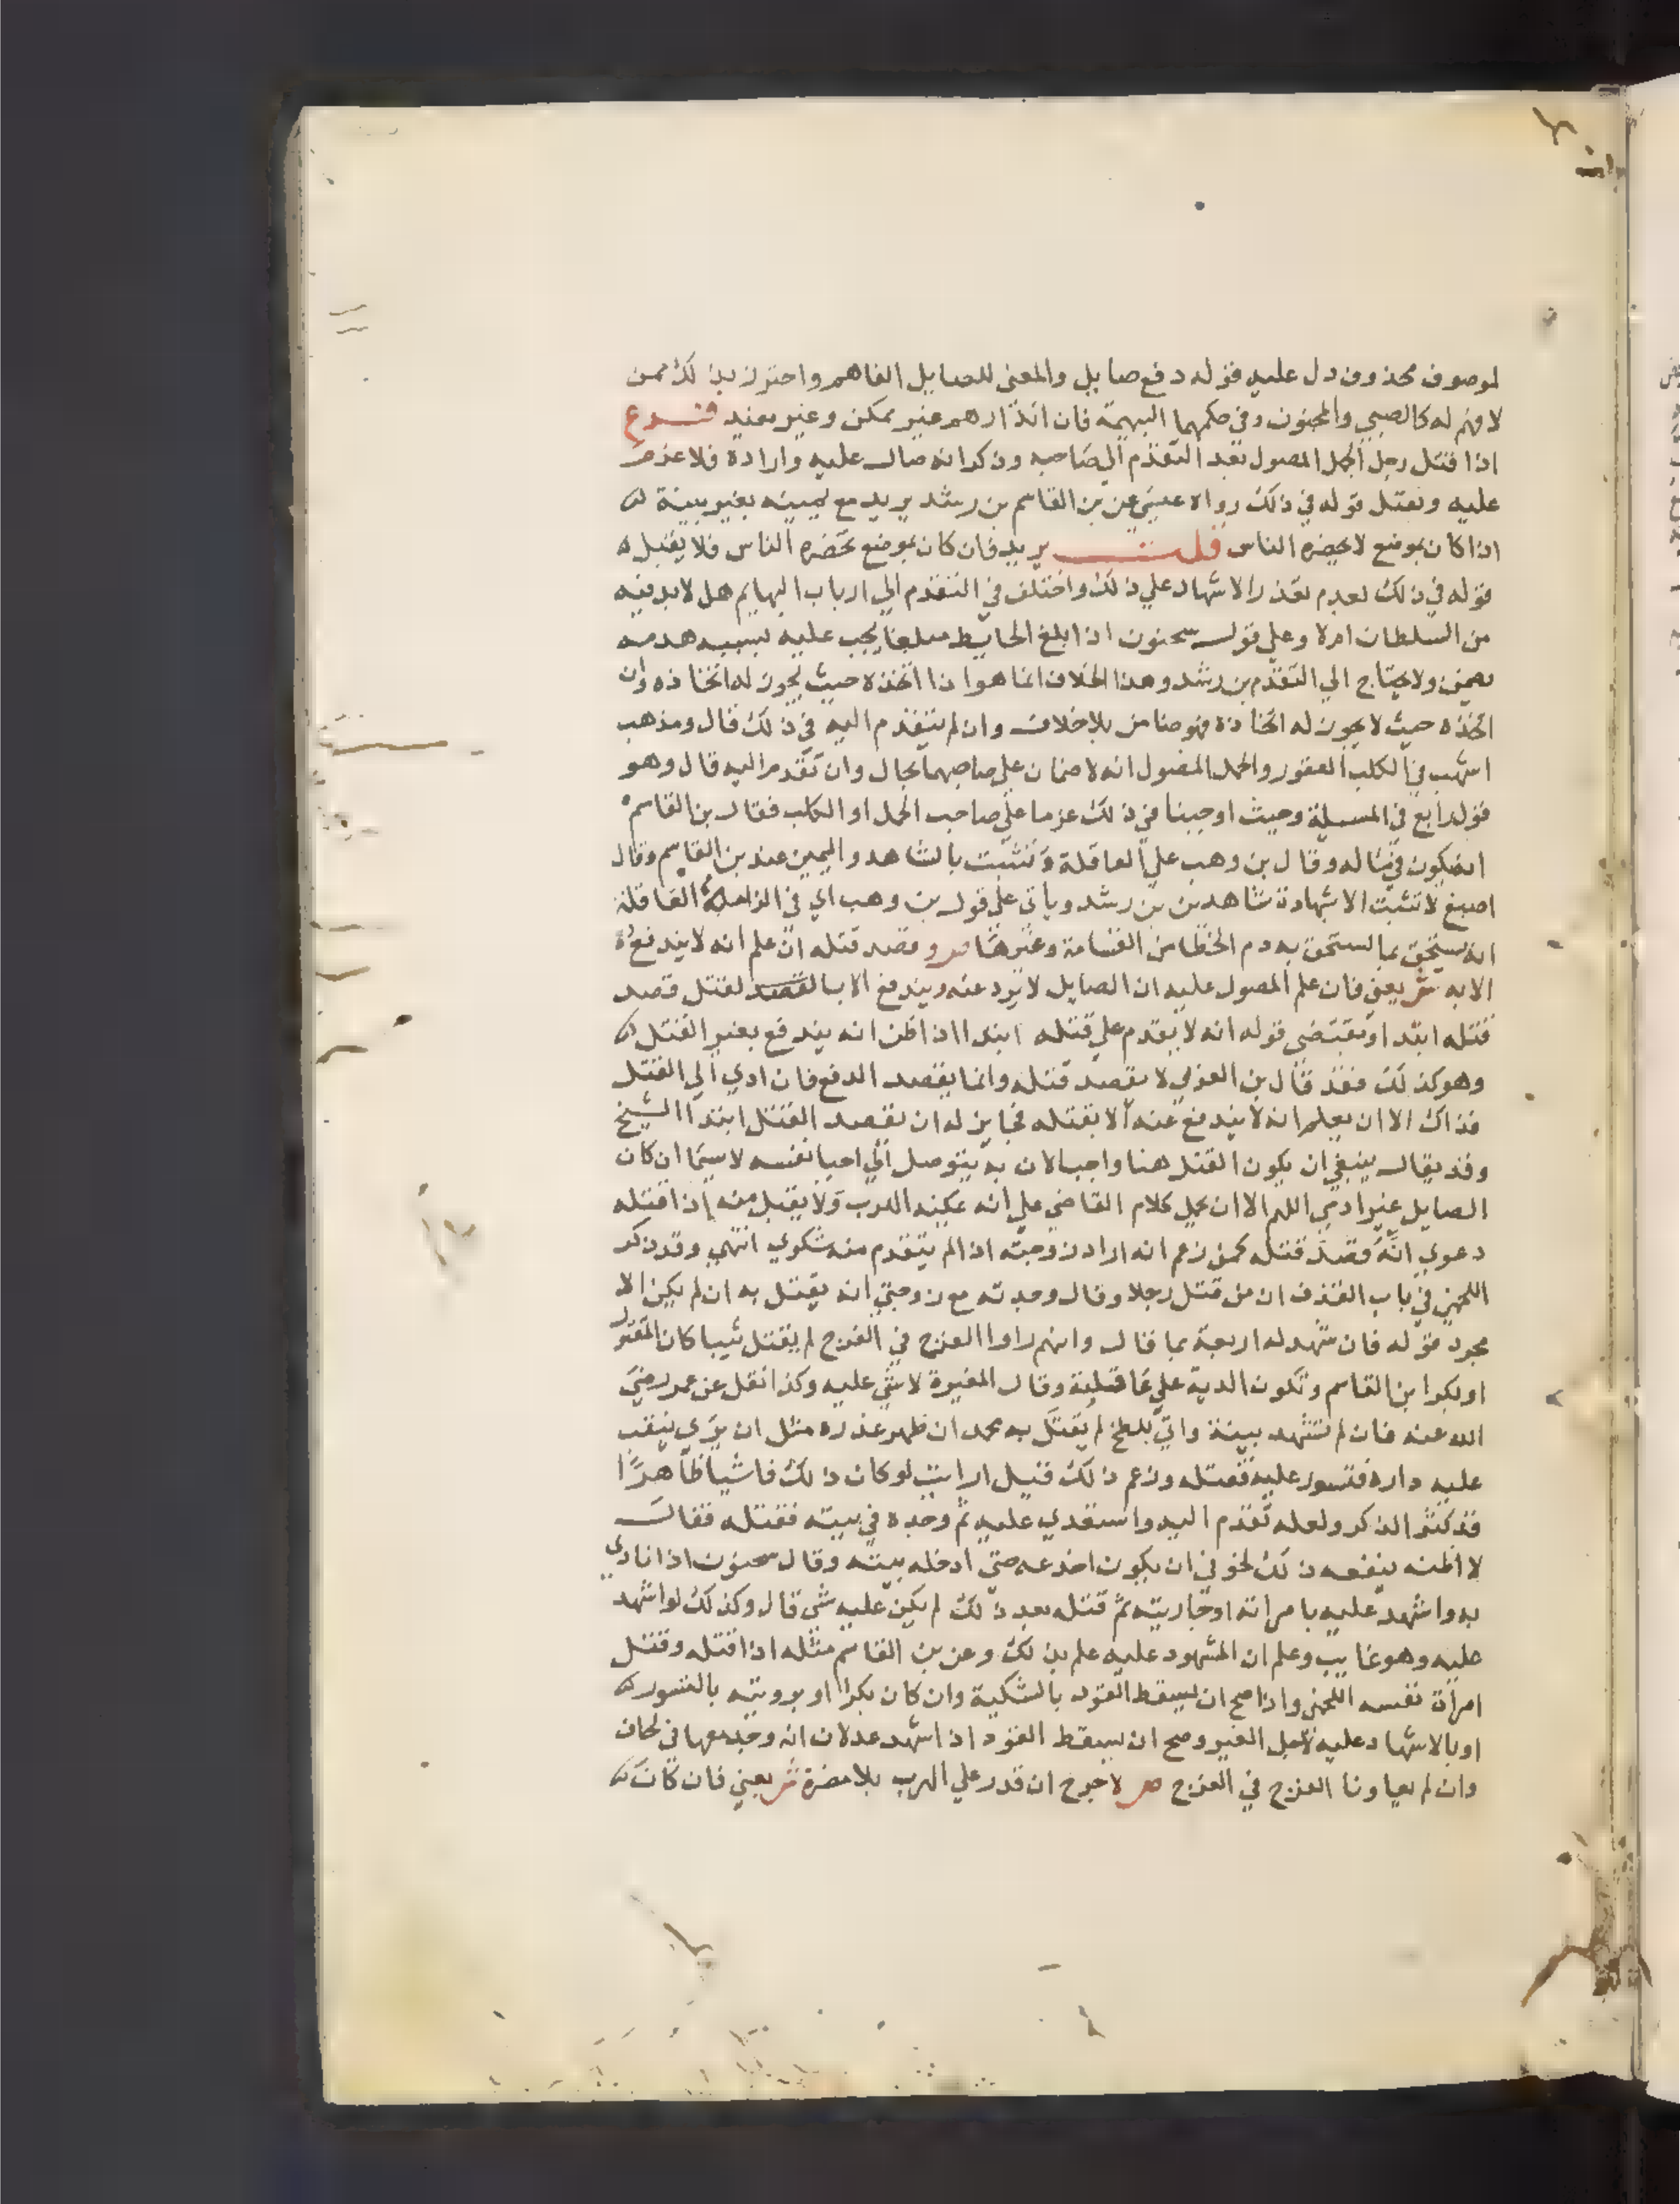 لموصوف محذوف دل عليه قوله دفع صايل والمعنى للصايل الفاهم واحترز بذلك ممن
لا فهم له كالصبي والمجنون وفي حكمهما البهيمة فان انذارهم غير ممكن وغير مفيد فرع
اذا قتل رجل الجمل المصول بعد التقدم الي صاحبه وذكر انه صال عليه واراده فلا غرم
عليه ويقبل قوله في ذلك رواه عيسي عن بن القاسم بن رشد يريد مع يمينه بغير بينة
اذا كان بموضع لا يحضره الناس قلت يريد فان كان بموضع يحضره الناس فلا يقبل
قوله في ذلك لعدم تعذر الاشهاد علي ذلك واختلف في التقدم الي ارباب البهايم هل لابد فيه
من السلطان ام لا وعلي قول سحنون اذا بلغ الحايط مبلغا يجب عليه لسببه هدمه
يضمن ولا يحتاج الي التقدم بن رشد وهذا الخلاف انما هو اذا اتخذه حيث يجوز له اتخاذه وان
اتخذه حيث لا يجوز له اتخاذه فهو ضامن بلا خلاف وان لم يتقدم اليه في ذلك قال ومذهب
اشهب في الكلب العقور والجمل المصول انه لا ضمان علي صاحبهما بحال وان تقدم اليه قال وهو
قول رابع في المسيلة وحيث اوجبنا في ذلك غرما علي صاحب الجمل او الكلب فقال بن القاسم
انه يكون في ماله وقال بن وهب علي العاقلة وتثبت بالشاهد واليمين عند بن القاسم وقال
اصبغ لا تثبت الا شهادة شاهدين بن رشد وياتي علي قول بن وهب اي في الزامه العاقلة
انه يستحق بما يستحق به دم الخطا من القسامة وغيرها ص وقصد قتله ان علم انه لا يندفع
الا به ش يعني فان علم المصول عليه ان الصايل لا يرد عنه ويندفع الا بالقصد لقتل قصد
قتله ابتدا ويقتضي قوله انه لا يقدم علي قتله ابتدا اذا ظن انه يندفع بغير القتل
وهو كذلك فقد قال بن العربي لا يقصد قتله وانما يقصد الدفع فان ادي الي القتل
فذاك الا ان يعلم انه لا يندفع عنه الا بقتله فجايز له ان يقصد القتل ابتدا الشيخ
وقد يقال ينبغي ان يكون القتل هنا واجبا لان به يتوصل الي احيا نفسه لاسيما ان كان
الصايل غير ادمي اللهم الا ان يحمل كلام القاضي علي انه يمكنه الهرب ولا يقبل منه اذا قتله
دعوي انه قصد قتله كمن زعم انه اراد زوجته اذا لم يتقدم منه شكوي انتهي وقد ذكر
اللخمي في باب القذف ان من قتل رجلا وقال وجدته مع زوجتي انه يقتل به ان لم يكن الا
مجرد قوله فان شهد له اربعة بما قال وانهم راوا الفرج في الفرج لم يقتل ثيبا كان المقتول
او بكرا ابن القاسم وتكون الدية علي عاقلته وقال المغيرة لا شي عليه وكذا نقل عن عمر رضي
الله عنه فان لم تشهد بينة واتي بلطخ لم يقتل به محمد ان ظهر عذره مثل ان يري ينقب
عليه داره فتسور عليه فقتله وزعم ذلك قيل ارايت لو كان ذلك فاشيا ظاهرا
قد كثر الذكر ولعله تقدم اليه واستعدي عليه ثم وجده في بيته فقتله فقال
لا اظنه ينفعه ذلك لخوفي ان يكون اخدعه حتي ادخله بيته وقال سحنون اذا نادي
به واشهد عليه بامراته او جاريته ثم قتله بعد ذلك لم يكن عليه شي قال وكذلك لو اشهد
عليه وهو غايب وعلم ان المشهود عليه علم بذلك وعن بن القاسم مثله اذا قتله وقتل
امراة نفسه اللخمي واذا صح ان يسقط القود بالشكية وان كان بكرا او برويته بالتسور
او بالاشهاد عليه لاجل الغير وصح ان يسقط القود اذا شهد عدلان انه وجد معها في لحاف
وان لم يعاونا الفرج في الفرج ص لا جرح ان قدر علي الهرب بلا مضرة ش يعني فان كان